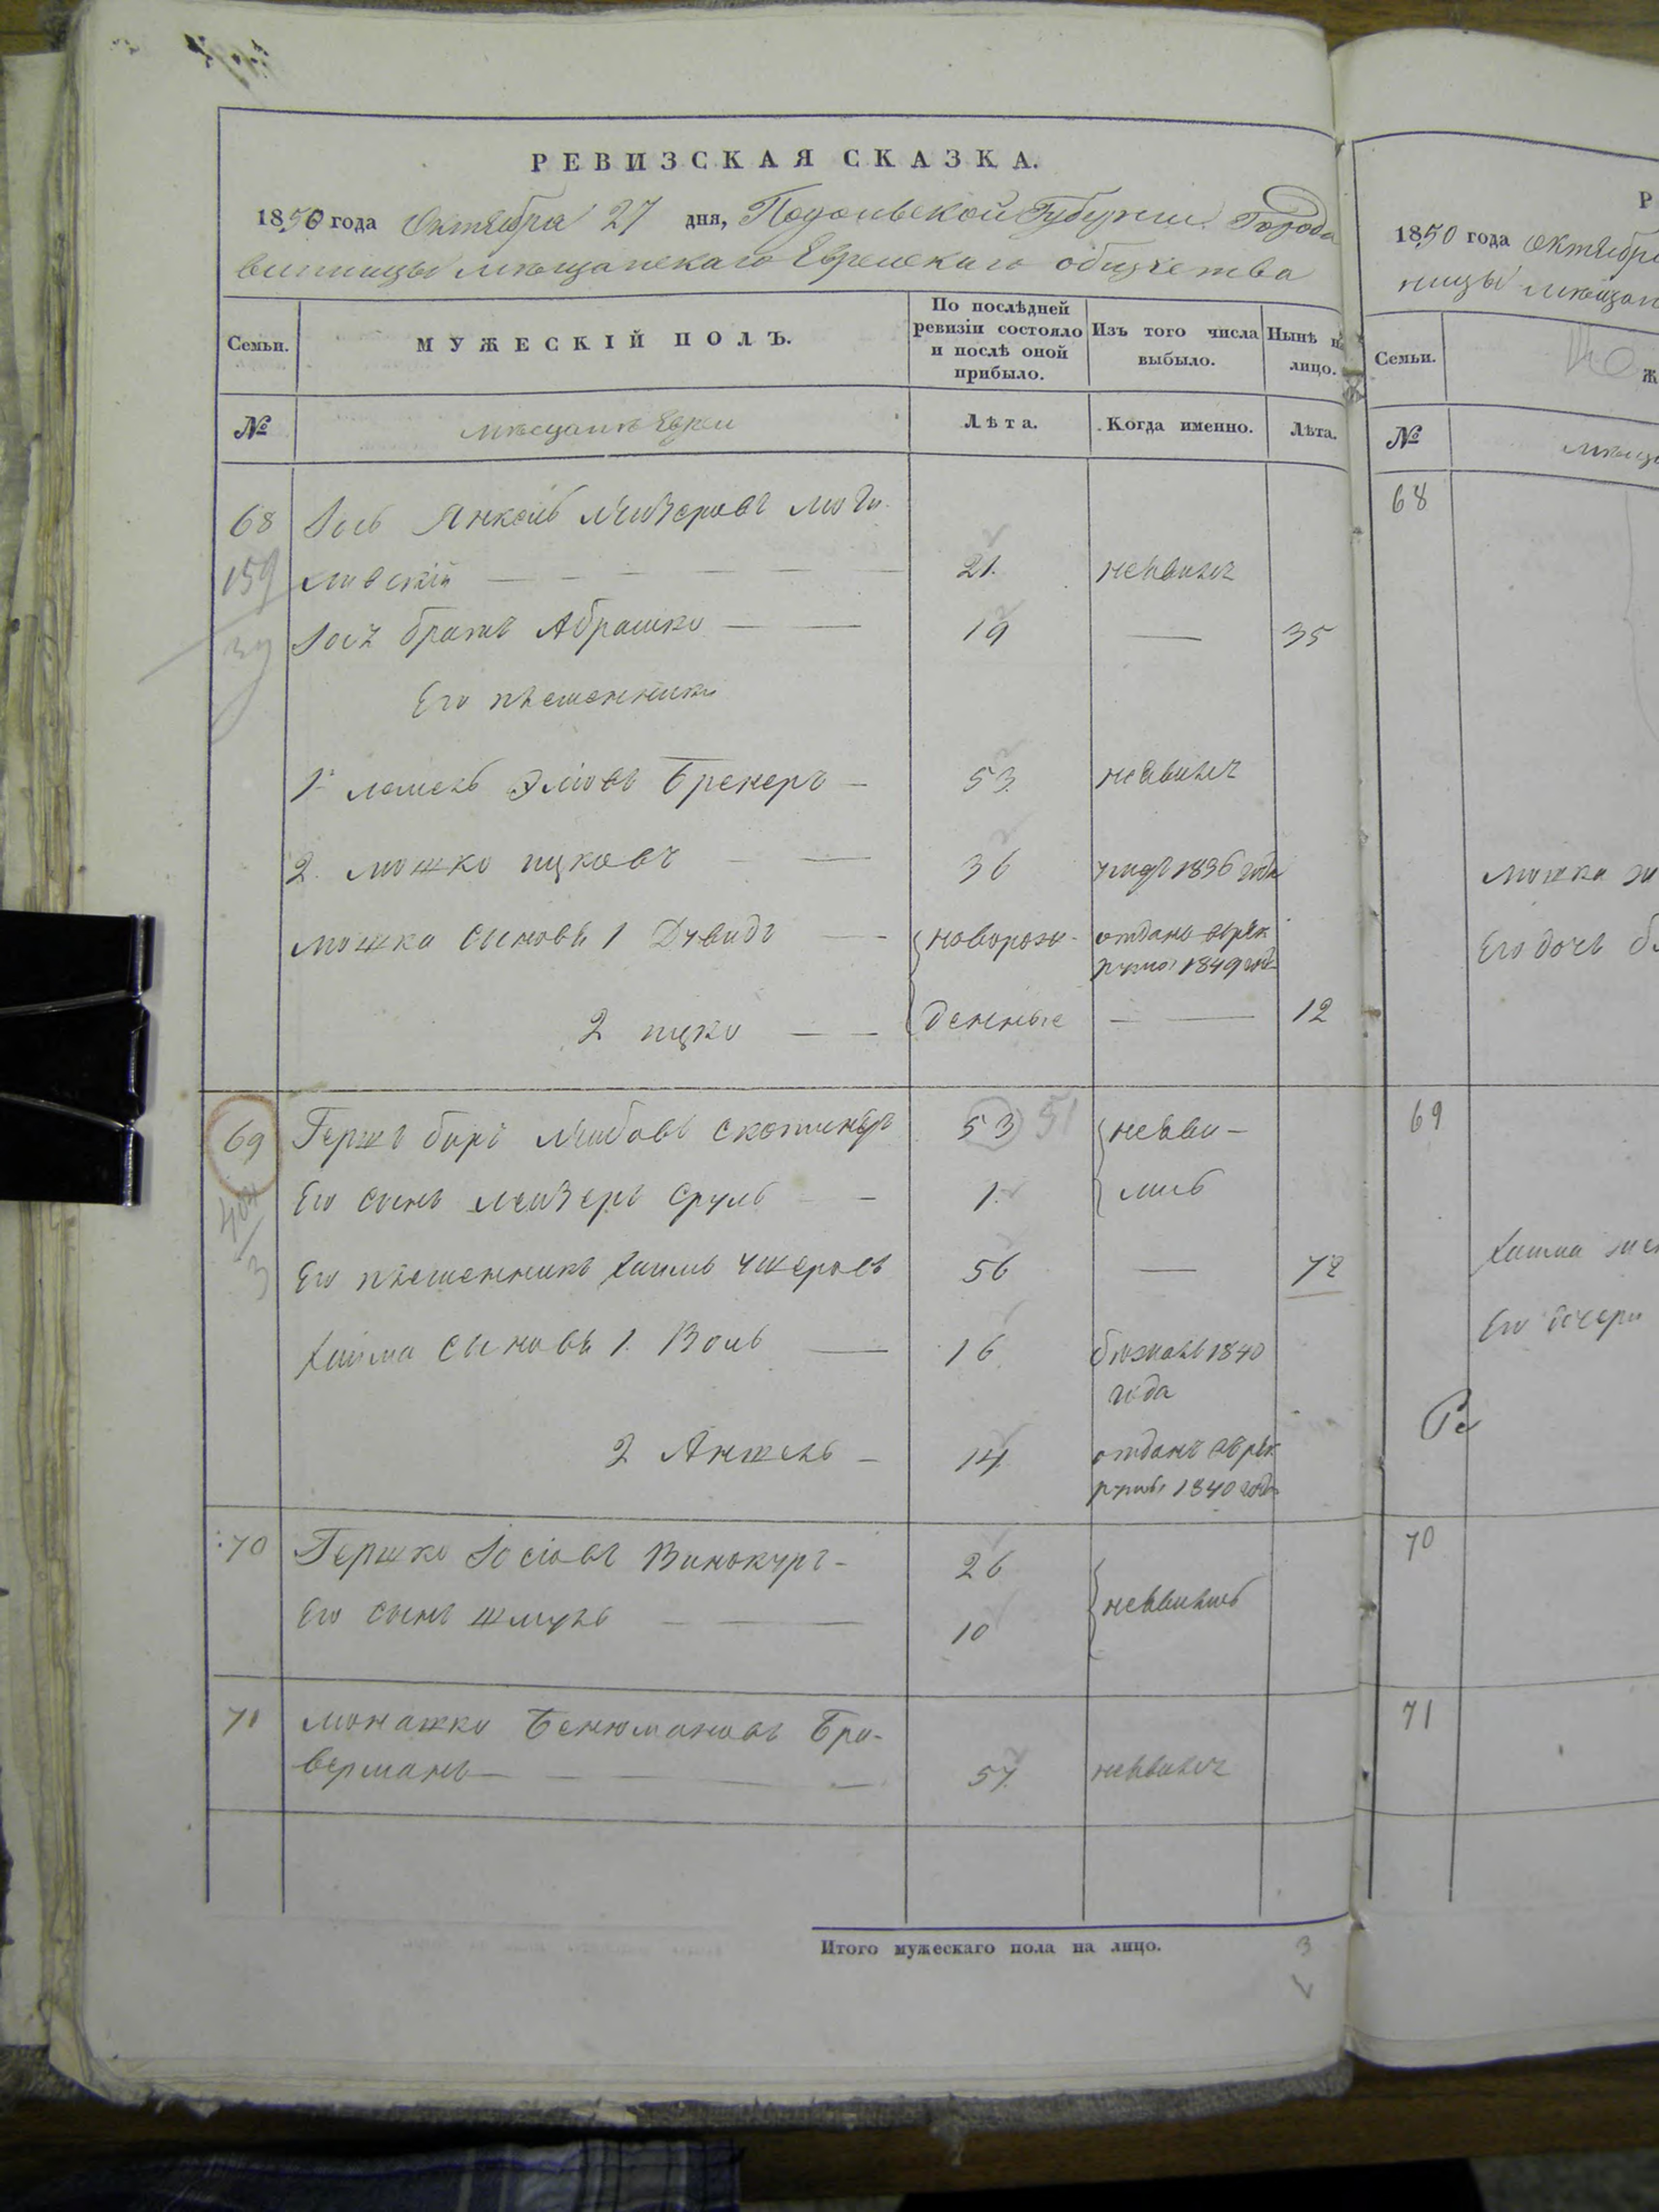 РЕВИЗСКАЯ СКАЗКА.
1850 года Октября 27 дня, Подольской Губернии Города
винницы мѣщанскаго Еврейскаго общества
Семьи.
МУЖЕСКІЙ ПОЛЪ.
По послѣдней ревизіи состояло и послѣ оной прибыло.
Изъ того числа выбыло.
Нынѣ н лицо.
№
мѣщане Евреи
Лѣта.
Когда именно.
Лѣта.
68 Янкель Лейзеровъ моги-
159 левскій 21. неявился
братъ Абрашко 19 — 35
39
Его племенники
1 Эліовъ Бренеръ 53. неявился
2. мошко ицковъ 36 1836 года
мошка сыновья 1 Дувидъ новорож- отданъ врек
руты 1849 года
2 ицко денные — 12
69 Гершъ беръ Лейбовъ 53 51 неяви-
Его сынъ лейзеръ сруль 1. лись
3
Его племенникъ хаимъ 56 — 72
хаима сыновья 1. Воль 16 бѣжалъ 1840
года
2 Аншель 14 отданъ врек
руты 1840 года
70 Гершко Іосіовъ Винокуръ 26 неявились
Его сынъ шмуль 10
71 монашко Бенюминовъ Бра-
верманъ 57. неявился
Итого мужескаго пола на лицо. 3
Р
1850 года октября
ницы мѣщан
Семьи.
Ж
№
мѣща
68
мошка же
Его дочь
69
хаима жен
Его дочери
70
71